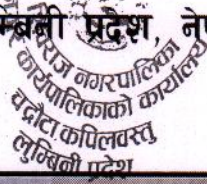 म्बिनी प्रदेश, ने
राज नगरपालिका
कार्यपालिकाको कार्यालय
चन्द्रौटा कपिलवस्तु
लुम्बिनी प्रदेश